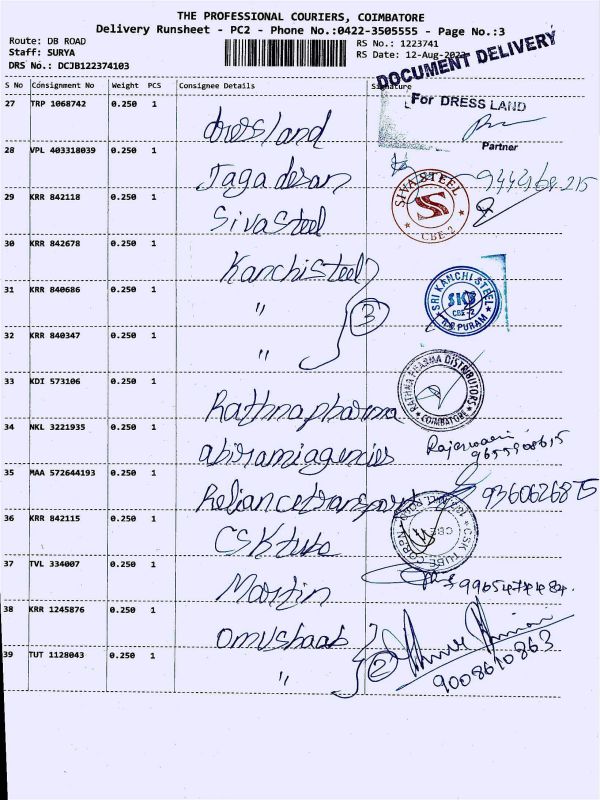 THE PROFESSIONAL COURIERS, COIMBATORE
Delivery Runsheet - PC2 - Phone No.:0422-3505555 - Page No.:3
Route: DB ROAD
Staff: SURYA
DRS No.: DCJB122374103
RS No.: 1223741
RS Date: 12-Aug-2023
DOCUMENT DELIVERY
S No Consignment No Weight PCS Consignee Details Signature
27 TRP 1068742 0.250 1 dressland
For DRESS LAND
Partner
28 VPL 403318039 0.250 1 Jagadesan
29 KRR 842118 0.250 1 Siva Steel
SIVA STEEL
S
CBE-2
30 KRR 842678 0.250 1 Kanchi Steel
31 KRR 840686 0.250 1 "
3
SRI KANCHI STEEL
SKS
CBE-2
R.S. PURAM
32 KRR 840347 0.250 1 "
33 KDI 573106 0.250 1 Rathna pharma
RATHNA PHARMA DISTRIBUTORS
COIMBATORE
34 NKL 3221935 0.250 1 abirami agencies
35 MAA 572644193 0.250 1 Reliance transport 9360626875
36 KRR 842115 0.250 1 CSK tube
CSK TUBE CORPN
CBE
37 TVL 334007 0.250 1 Martin
38 KRR 1245876 0.250 1
39 TUT 1128043 0.250 1 "
2
9008610863